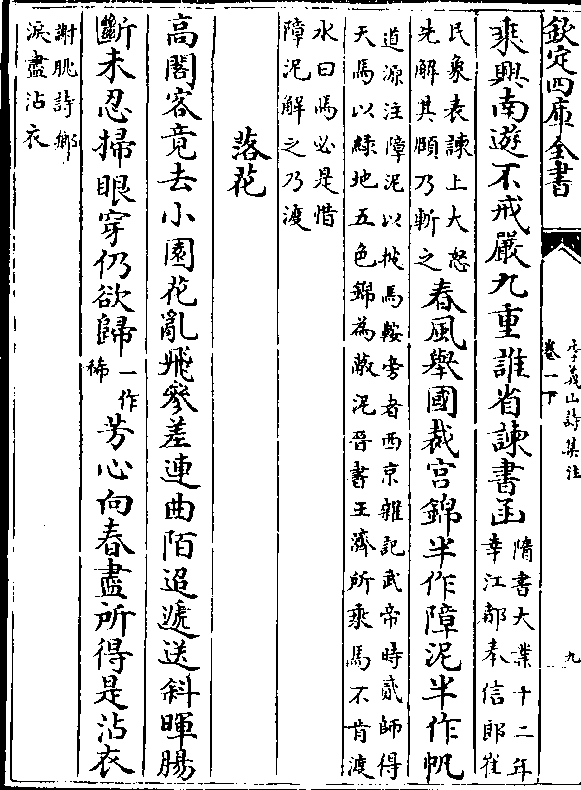 欽定四庫全書
李義山詩集注
卷一下
九
乘興南遊不戒嚴九重誰省諫書函
隋書大業十二年
幸江都奉信郎崔
民象表諫上大怒
先解其頤乃斬之
春風舉國裁宮錦半作障泥半作帆
道源注障泥以披馬鞍旁者西京雜記武帝時貳師得
天馬以緑地五色錦為蔽泥晉書王濟所乘馬不肯渡
水曰馬必是惜
障泥解之乃渡
落花
高閣客竟去小園花亂飛參差連曲陌迢遞送斜暉腸
斷未忍掃眼穿仍欲歸
一作
稀
芳心向春盡所得是沾衣
謝朓詩鄉
淚盡沾衣